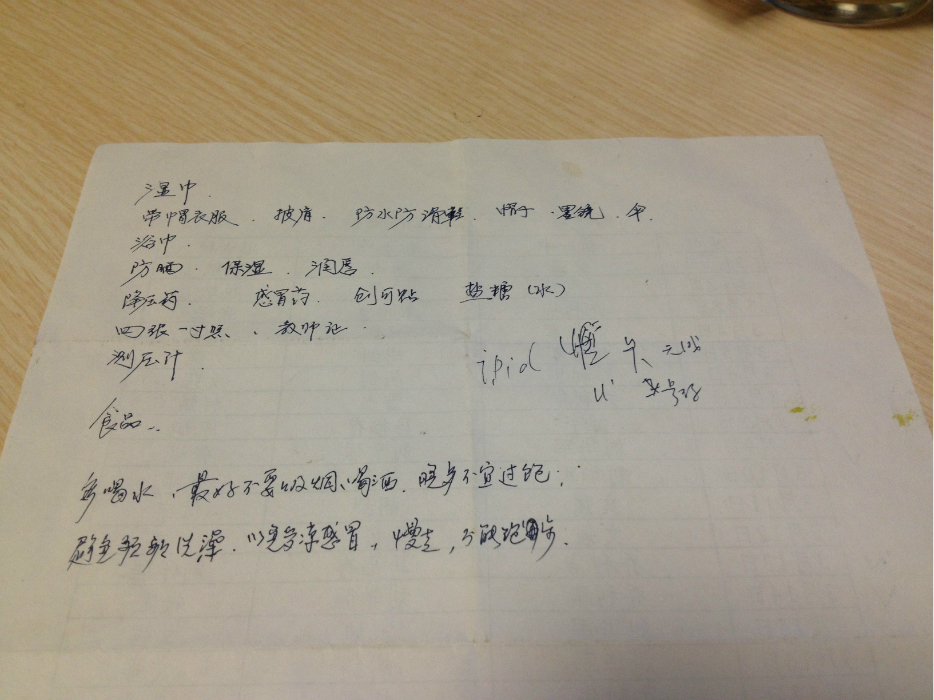 湿巾.
带帽衣服、披肩、防水防滑鞋、帽子、墨镜、伞.
浴巾.
防晒、保湿、润唇.
降压药 感冒药、创可贴 盐糖(水)
四张一寸照、教师证.
测压计.
ipid 卡
食品..
多喝水、最好不要吸烟、喝酒、晚上不宜过饱;
避免频频洗澡、以免受凉感冒,慢走,不能跑步.